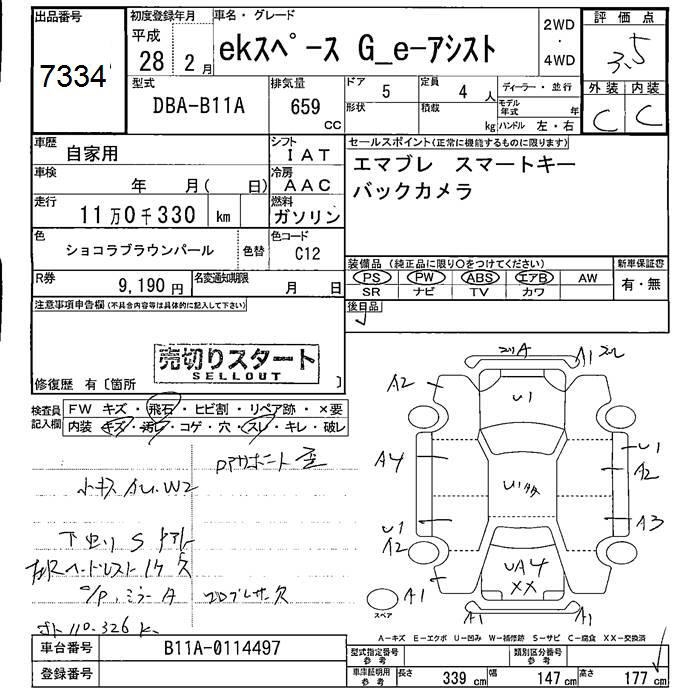 出品番号
7334
初度登録年月
平成
28 2 月
車名・グレード
ekスペース G_e-アシスト
2WD
・
4WD
評価点
3.5
外装 内装
C C
型式
DBA-B11A
排気量
659 CC
ドア 5
形状
定員 4 人
積載 kg
ディーラー・並行
モデル年式 年
ハンドル 左・右
車歴 自家用
シフト IAT
車検 年 月( 日)
冷房 AAC
走行 11万0千330 km
燃料 ガソリン
色 ショコラブラウンパール
色替
色コード C12
R券 9,190円
名変通知期限 月 日
セールスポイント(正常に機能するものに限ります)
エマブレ スマートキー
バックカメラ
装備品 (純正品に限り○をつけてください)
PS PW ABS エアB AW
SR ナビ TV カワ
新車保証書
有・無
後日品
注意事項申告欄(不具合内容等は具体的に記入して下さい)
売切りスタート
SELLOUT
修復歴 有〔箇所 〕
検査員記入欄
FW キズ・飛石・ヒビ割・リペア跡・×要
内装 キズ・汚レ・コゲ・穴・スレ・キレ・破レ
小キズ A.U.W2
下廻り S
A1
A2
U1
A4
U1
A2
U1
A2
A3
UA4
XX
A1
A1
A1
スペア
A-キズ E-エクボ U-凹み W-補修跡 S-サビ C-腐食 XX-交換済
車台番号 B11A-0114497
登録番号
型式指定番号 参考
類別区分番号 参考
車庫証明用 参考
長さ 339 cm 幅 147 cm 高さ 177 cm